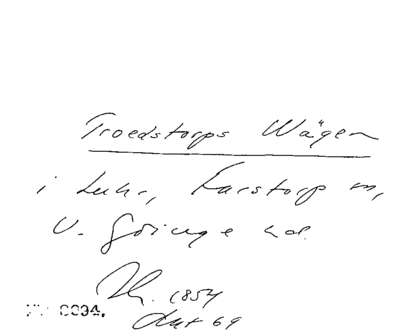 Troedstorps Wägen
i Luhr, Farstorp sn,
V. Göinge hd.
1854
Akt 69